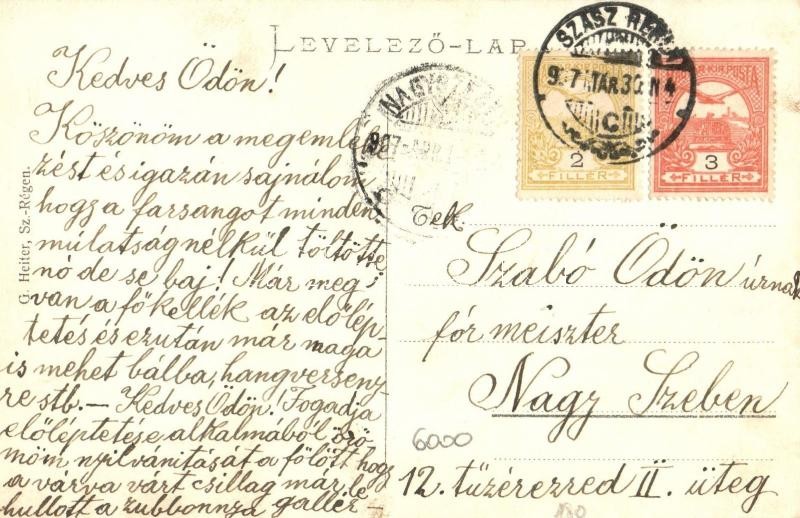 LEVELEZŐ-LAP
Kedves Ödön!
Köszönöm a megemléke
zést és igazán sajnálom
hogy a farsangot minden
múlatság nélkül töltötte
nó de se baj! Már meg
van a főkellék az előlép
tetés és ezután már maga
is mehet bálba, hangverseny
re stb. — Kedves Ödön! Fogadja
előléptetése alkalmából örö
möm nyilvánitását a fölött hogy
a várva várt csillag már le
hullott a zubbonnya gallér-
G. Heiter, Sz.-Régen.
NAGYSZ
SZÁSZ RÉGEN
907 MÁR 30 N 4
C
2
FILLÉR
MAGY. KIR. POSTA
3
FILLÉR
Tek.
Szabó Ödön úrnak
fór meiszter
Nagy Szeben
12. tüzérezred II. üteg
6000